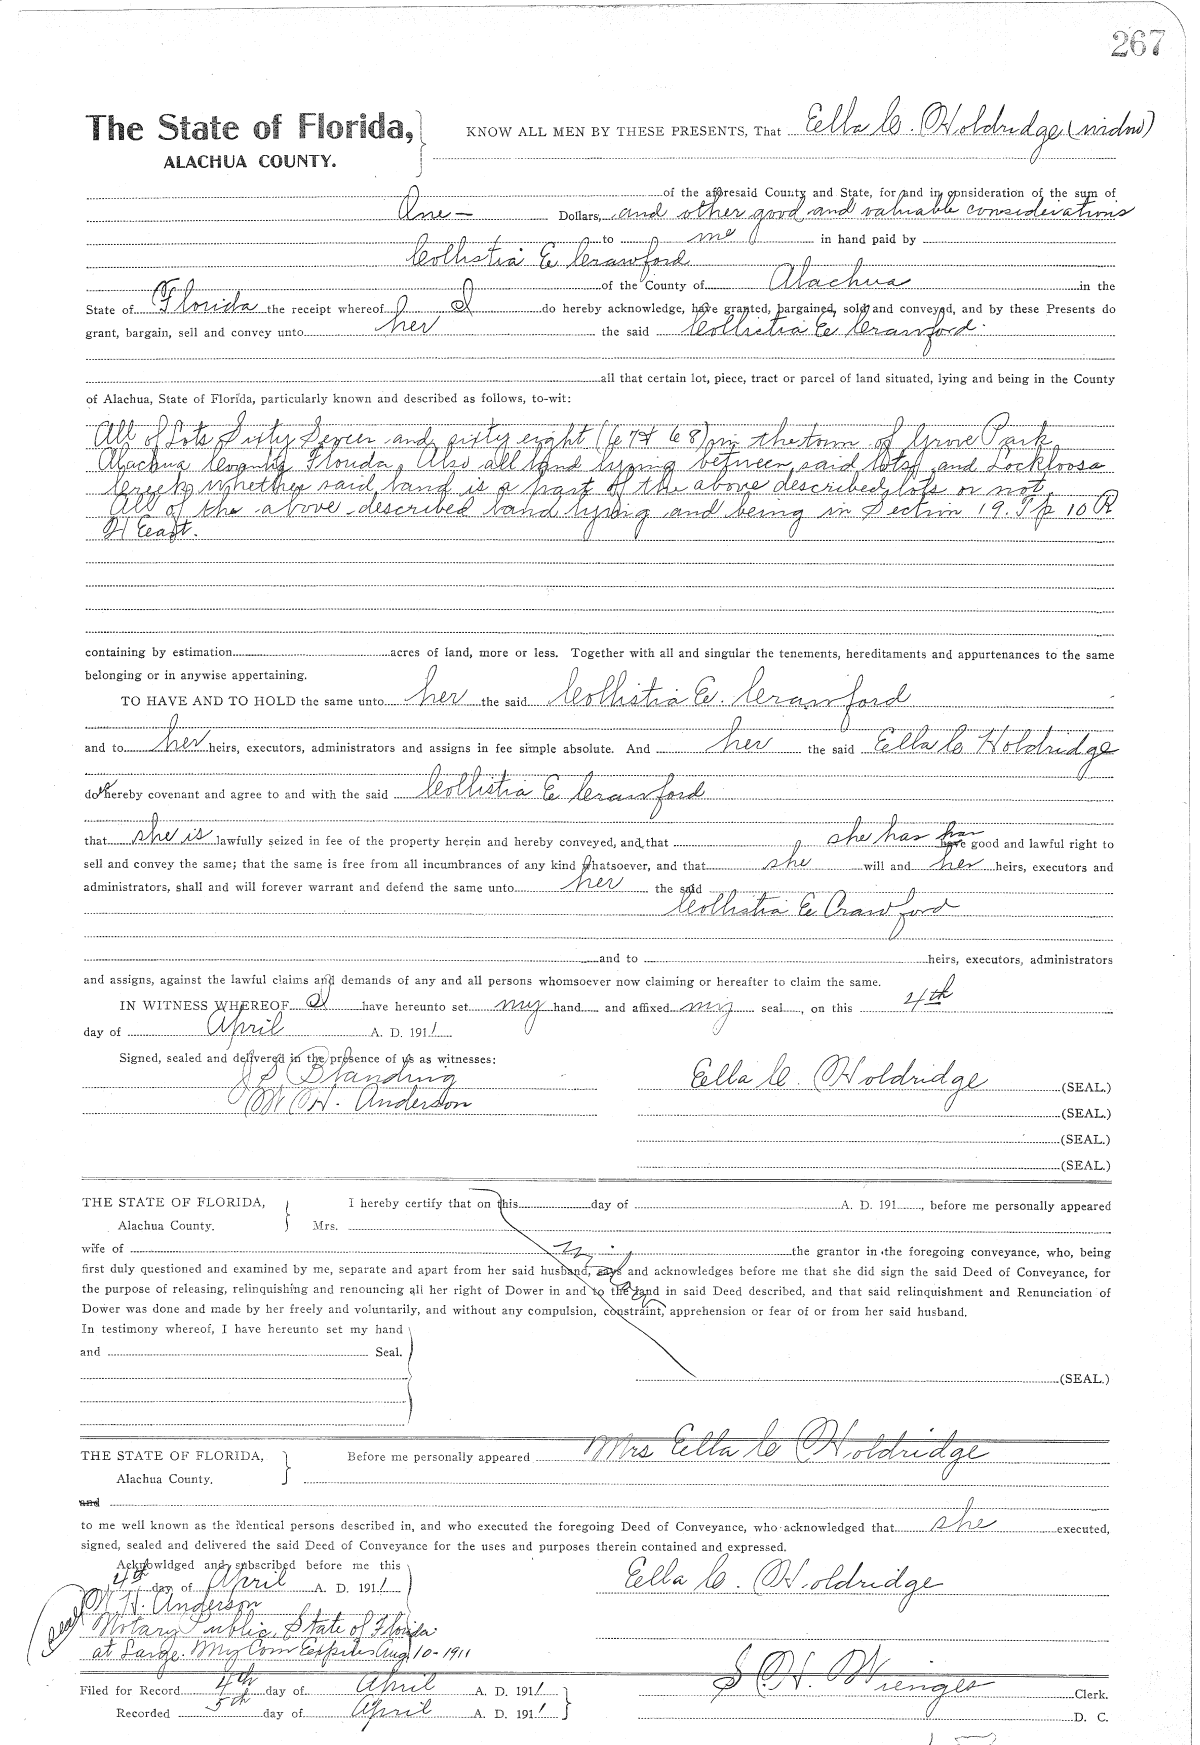 267
The State of Florida,
ALACHUA COUNTY.
KNOW ALL MEN BY THESE PRESENTS, That Ella C. Holdridge (widow)
of the aforesaid County and State, for and in consideration of the sum of
One — Dollars, and other good and valuable considerations
to me in hand paid by
Collistia E Crawford
of the County of Alachua in the
State of Florida the receipt whereof I do hereby acknowledge, have granted, bargained, sold and conveyed, and by these Presents do
grant, bargain, sell and convey unto her the said Collistia E Crawford.
all that certain lot, piece, tract or parcel of land situated, lying and being in the County
of Alachua, State of Florida, particularly known and described as follows, to-wit:
All of Lots Sixty Seven and sixty eight (67 & 68) in the town of Grove Park
Alachua County Florida, Also all land lying between said lots and Lockloosa
Creek whether said land is a part of the above described lots or not.
All of the above described land lying and being in Section 19. Tp 10 R
21 East.
containing by estimation acres of land, more or less. Together with all and singular the tenements, hereditaments and appurtenances to the same
belonging or in anywise appertaining.
TO HAVE AND TO HOLD the same unto her the said Collistia E. Crawford
and to her heirs, executors, administrators and assigns in fee simple absolute. And her the said Ella C Holdridge
does hereby covenant and agree to and with the said Collistia E Crawford
that she is lawfully seized in fee of the property herein and hereby conveyed, and that she has have good and lawful right to
sell and convey the same; that the same is free from all incumbrances of any kind whatsoever, and that she will and her heirs, executors and
administrators, shall and will forever warrant and defend the same unto her the said
Collistia E Crawford
and to heirs, executors, administrators
and assigns, against the lawful claims and demands of any and all persons whomsoever now claiming or hereafter to claim the same.
IN WITNESS WHEREOF I have hereunto set my hand and affixed my seal, on this 4th
day of April A. D. 1911
Signed, sealed and delivered in the presence of us as witnesses:
J S Blanding
W H. Anderson
Ella C. Holdridge (SEAL.)
(SEAL.)
(SEAL.)
(SEAL.)
THE STATE OF FLORIDA,
Alachua County.
I hereby certify that on this day of A. D. 191 , before me personally appeared
Mrs.
wife of the grantor in the foregoing conveyance, who, being
first duly questioned and examined by me, separate and apart from her said husband, says and acknowledges before me that she did sign the said Deed of Conveyance, for
the purpose of releasing, relinquishing and renouncing all her right of Dower in and to the land in said Deed described, and that said relinquishment and Renunciation of
Dower was done and made by her freely and voluntarily, and without any compulsion, constraint, apprehension or fear of or from her said husband.
In testimony whereof, I have hereunto set my hand
and Seal.
(SEAL.)
THE STATE OF FLORIDA,
Alachua County.
Before me personally appeared Mrs Ella C Holdridge
and
to me well known as the identical persons described in, and who executed the foregoing Deed of Conveyance, who acknowledged that she executed,
signed, sealed and delivered the said Deed of Conveyance for the uses and purposes therein contained and expressed.
Acknowldged and subscribed before me this
4th day of April A. D. 1911
Ella C. Holdridge
(seal) W H. Anderson
Notary Public, State of Florida
at Large. My Com Expires Aug 10-1911
Filed for Record 4th day of April A. D. 1911
S H. Wienges Clerk.
Recorded 5th day of April A. D. 1911
D. C.